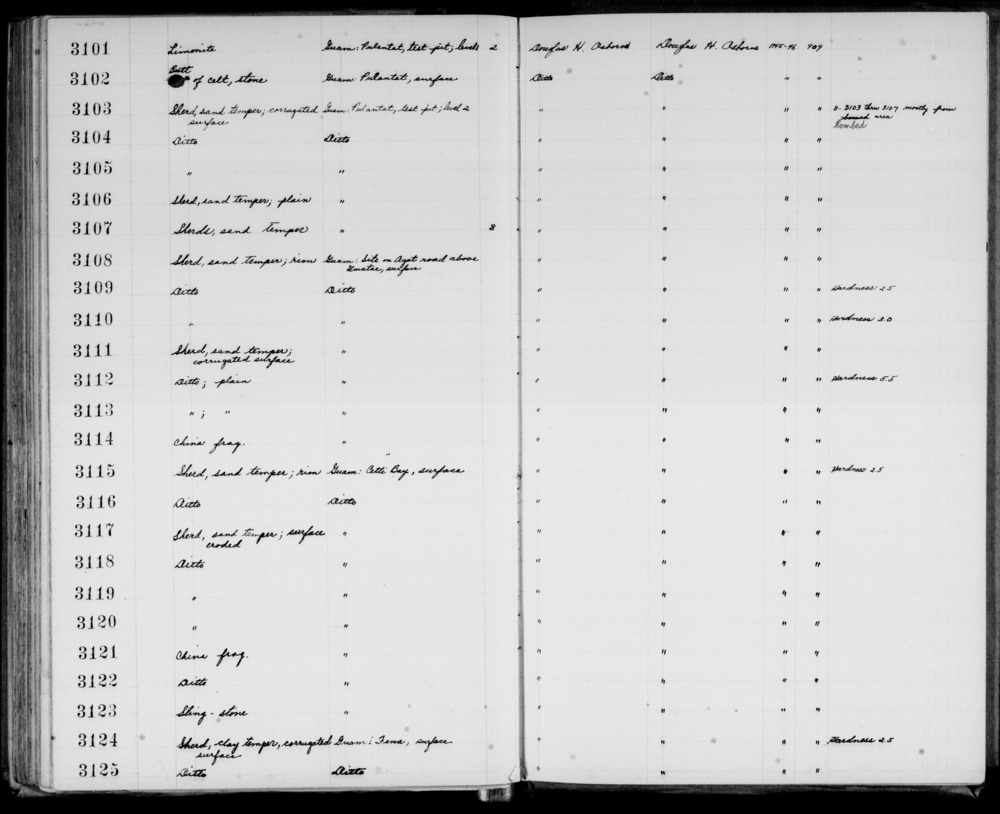 3101 Limonite Guam: Pulantat, test pit; level 2 Douglas H. Osborne Douglas H. Osborne 1945-46 909
Butt
3102 of celt, stone Guam: Pulantat, surface Ditto Ditto " "
3103 Sherd, sand temper; corrugated Guam: Pulantat, test pit; level 2 " " " " 3103 thru 3107 mostly from
surface area
bombed
3104 Ditto Ditto " " " "
3105 " " " " " "
3106 Sherd, sand temper; plain " " " " "
3107 Sherds, sand temper " 3 " " " "
3108 Sherd, sand temper; rim Guam: Site on Agat road above " " " "
Umatac, surface
3109 Ditto Ditto " " " " Hardness 2.5
3110 " " " " " " Hardness 3.0
3111 Sherd, sand temper; " " " " "
corrugated surface
3112 Ditto; plain " " " " " Hardness 5.5
3113 " ; " " " " " "
3114 China frag. " " " " "
3115 Sherd, sand temper; rim Guam: Cetti Bay, surface " " " " Hardness 2.5
3116 Ditto Ditto " " " "
3117 Sherd, sand temper; surface " " " " "
eroded
3118 Ditto " " " " "
3119 " " " " " "
3120 " " " " " "
3121 China frag. " " " " "
3122 Ditto " " " " "
3123 Sling-stone " " " " "
3124 Sherd, clay temper, corrugated Guam: Fena, surface " " " " Hardness 2.5
surface
3125 Ditto Ditto " " " "